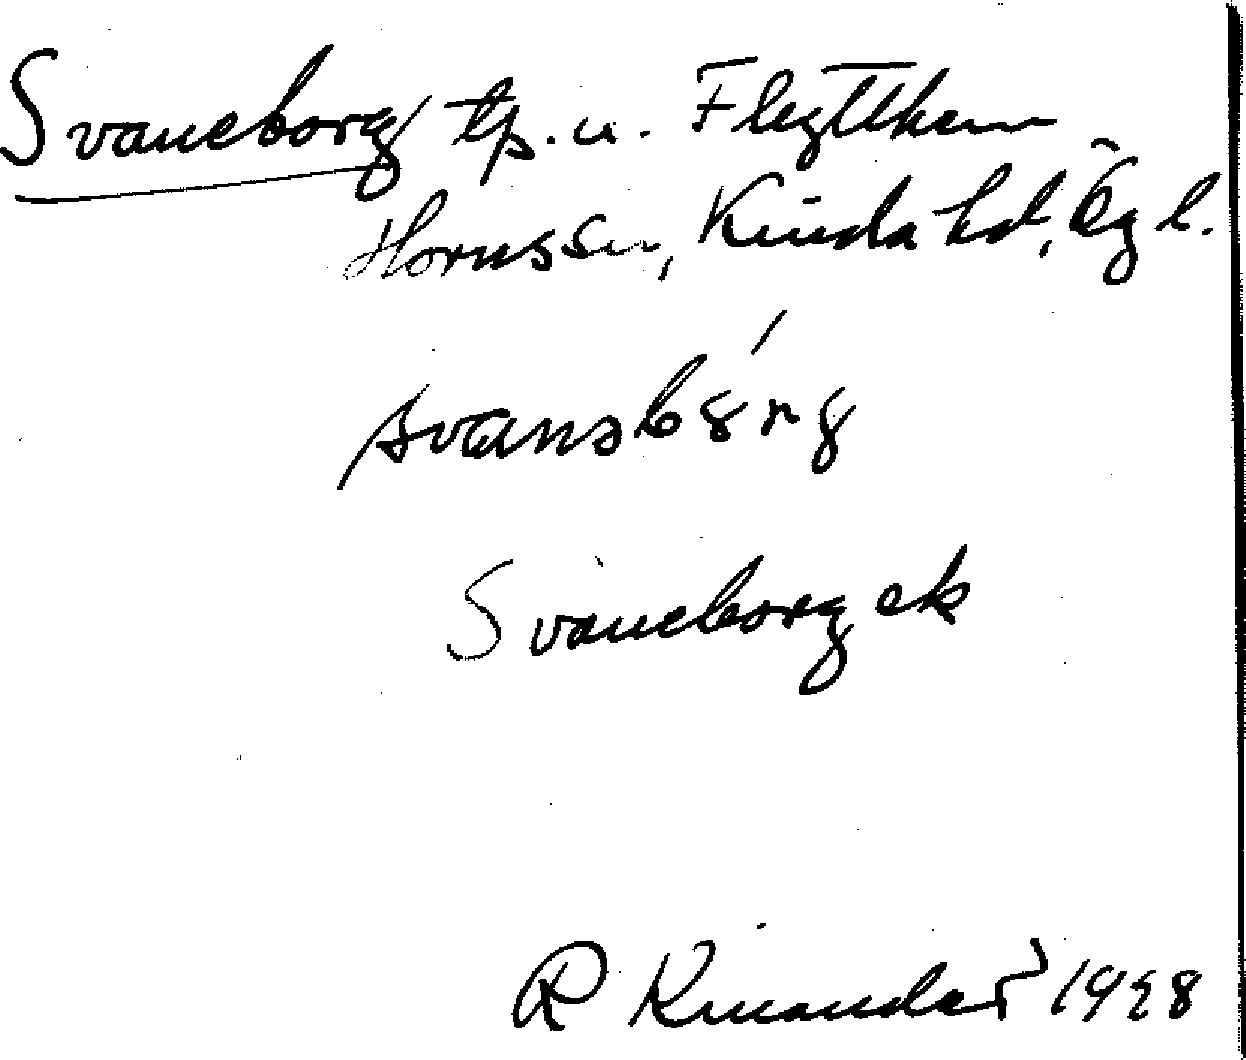 Svaneborg tp. u. Flytthem
Hornssn, Kinda hd, Ögl.
svansbǫ́rg
Svaneborg ek
R Kinander 1928